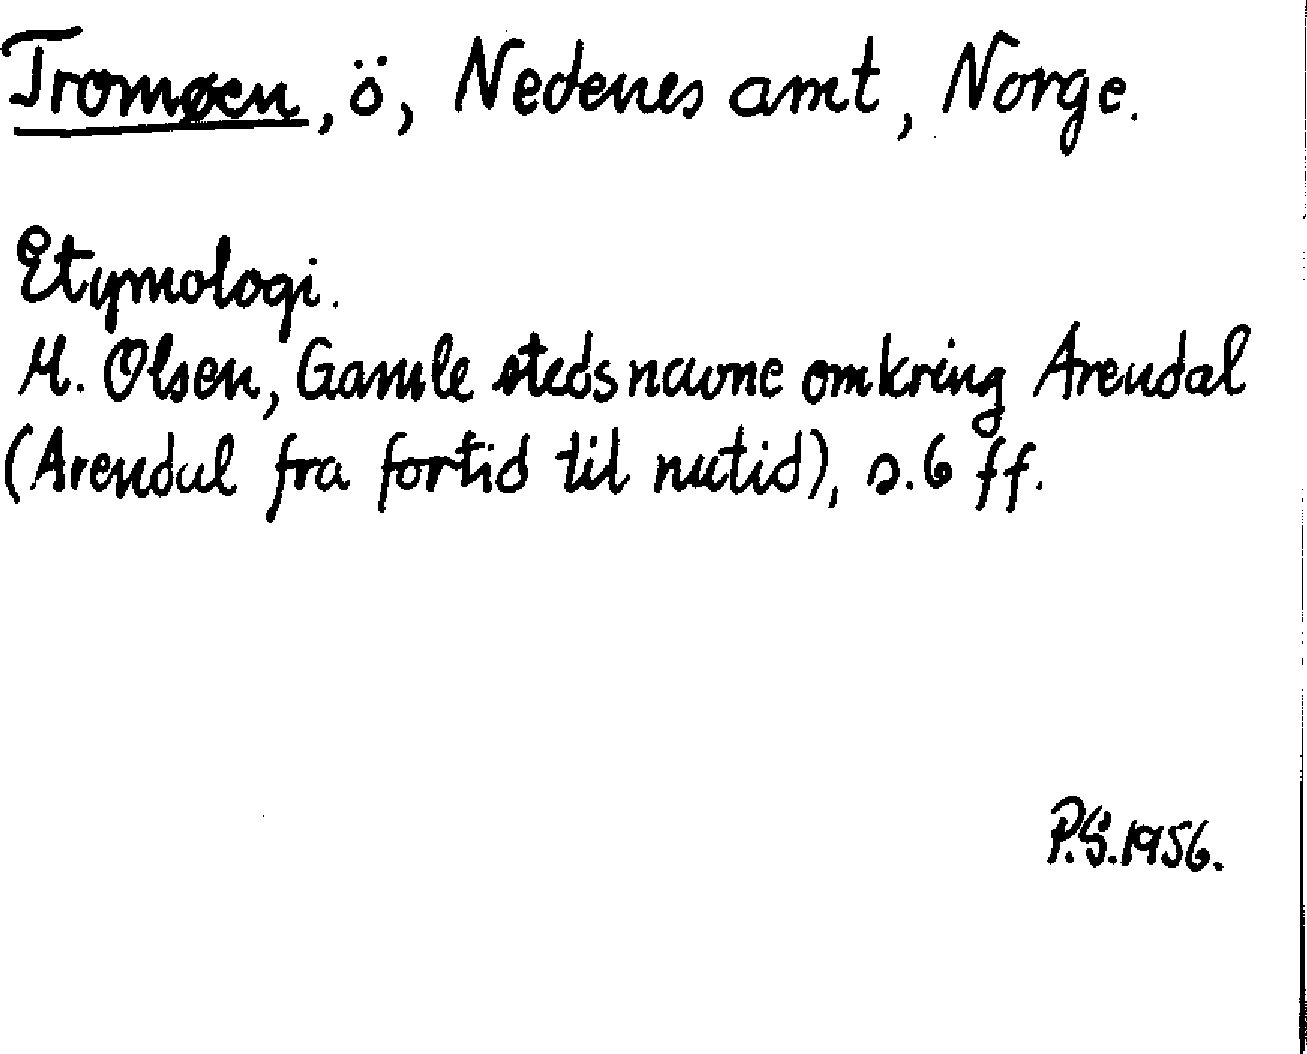 Tromøen, ö, Nedenes amt, Norge.
Etymologi.
M. Olsen, Gamle stedsnavne omkring Arendal
(Arendal fra fortid til nutid), s. 6 ff.
P.S. 1956.